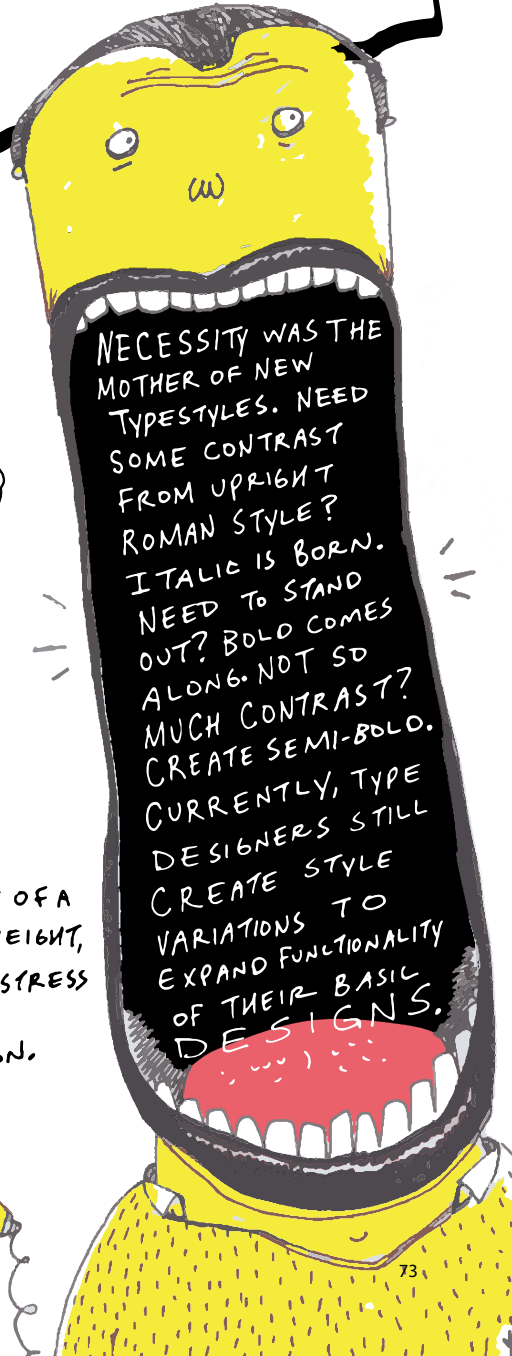 NECESSITY WAS THE
MOTHER OF NEW
TYPESTYLES. NEED
SOME CONTRAST
FROM UPRIGHT
ROMAN STYLE?
ITALIC IS BORN.
NEED TO STAND
OUT? BOLD COMES
ALONG. NOT SO
MUCH CONTRAST?
CREATE SEMI-BOLD.
CURRENTLY, TYPE
DESIGNERS STILL
CREATE STYLE
VARIATIONS TO
EXPAND FUNCTIONALITY
OF THEIR BASIC
DESIGNS.
OF A
STRESS
73